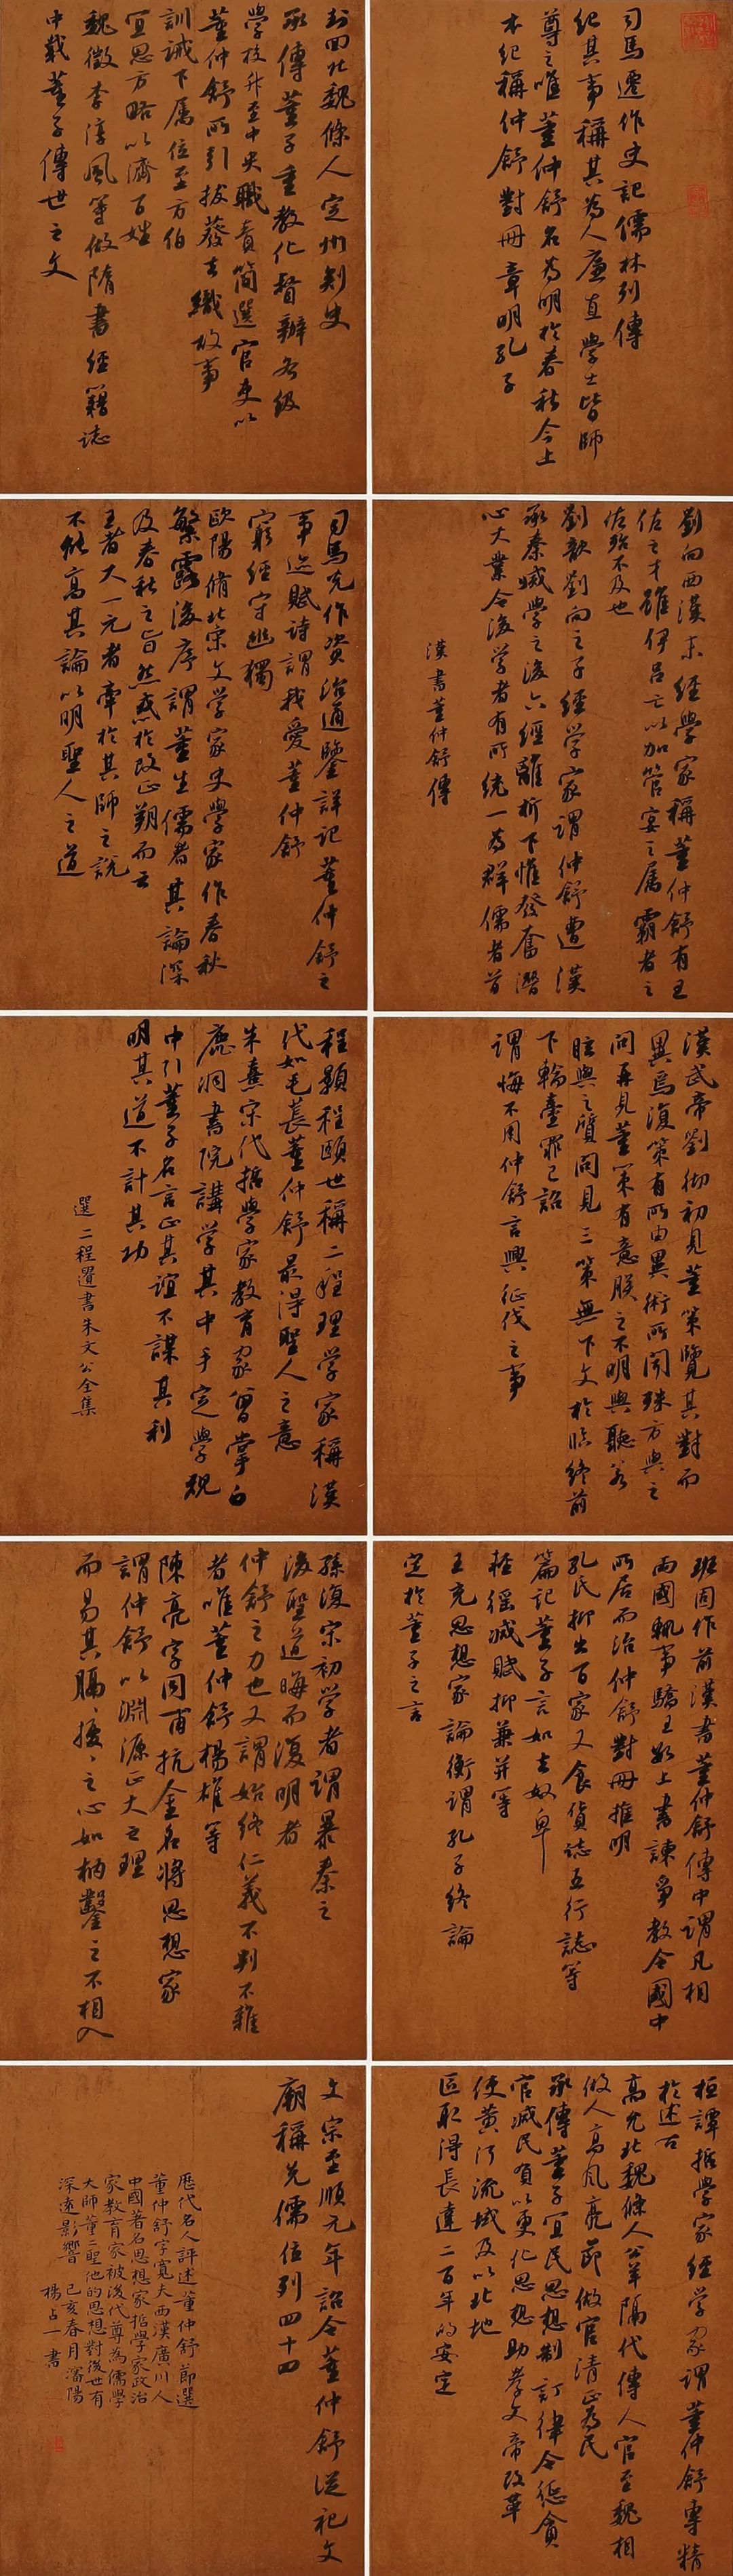 司馬遷作史記儒林列傳
紀其事稱其為人廉直學士皆師
尊之唯董仲舒名為明於春秋今上
本紀稱仲舒對冊章明孔子
劉向西漢末經學家稱董仲舒有王
佐之才雖伊呂亡以加管宴之屬霸者之
佐殆不及也
劉歆劉向之子經学家謂仲舒遭漢
承秦滅學之後六經離析下惟發奮潛
心大業令後学者有所統一為群儒者首
漢書董仲舒傳
漢武帝劉彻初見董策覽其對而
異焉復策有所由異術所聞殊方與之
問再見董策有意朕之不明與聽若
眩與之質問見三策無下文於临終前
下輪臺罪己詔
謂悔不用仲舒言興征伐之事
班固作前漢書董仲舒傳中謂凡相
兩國輒事驕王數上書諫爭教令國中
所居而治仲舒對冊推明
孔氏抑出百家又食貨誌五行誌等
篇記董子言如去奴卑
輕徭減賦抑兼并等
王充思想家論衡謂孔子終論
定於董子之言
桓譚哲學家經学家謂董仲舒專精
於述古
高允北魏條人公羊隔代傳人官至魏相
做人高風亮節做官清正為民
承傳董子宜民思想制訂律令懲貪
官減民負以更化思想助孝文帝改革
使黄河流域及以北地
區取得長達二百年的安定
封回北魏條人定州刺史
承傳董子重教化督辦各級
學校升至中央職責简選官吏以
董仲舒所引拔蔡去織故事
訓誡下属位至方伯
宜思方略以濟百姓
魏徵李淳風等做隋書經籍誌
中載董子傳世之文
司馬光作资治通鑒詳記董仲舒之
事迹賦詩謂我愛董仲舒
窮經守幽獨
歐陽脩北宋文学家史學家作春秋
繁露後序謂董生儒者其論深
及春秋之旨然惑於改正朔而云
王者大一元者牽於其師之說
不能高其論以明聖人之道
程顥程頤世稱二程理学家稱漢
代如毛萇董仲舒最得聖人之意
朱熹宋代哲學家教育家曾掌白
鹿洞書院講学其中手定學規
中引董子名言正其誼不謀其利
明其道不計其功
選二程遺書朱文公全集
孫復宋初学者謂暴秦之
後聖道晦而復明者
仲舒之力也又謂始終仁義不判不雜
者唯董仲舒楊雄等
陳亮字同甫抗金名將思想家
謂仲舒以淵源正大之理
而易其膈、擾、之心如枘鑿之不相入
文宗至順元年詔令董仲舒從祀文
廟稱先儒位列四十四
歷代名人評述董仲舒節選
董仲舒字寬夫西漢廣川人
中國著名思想家哲學家政治
家教育家被後代尊為儒學
大師董二聖他的思想對後世有
深遠影響己亥春月瀋陽
楊占一書